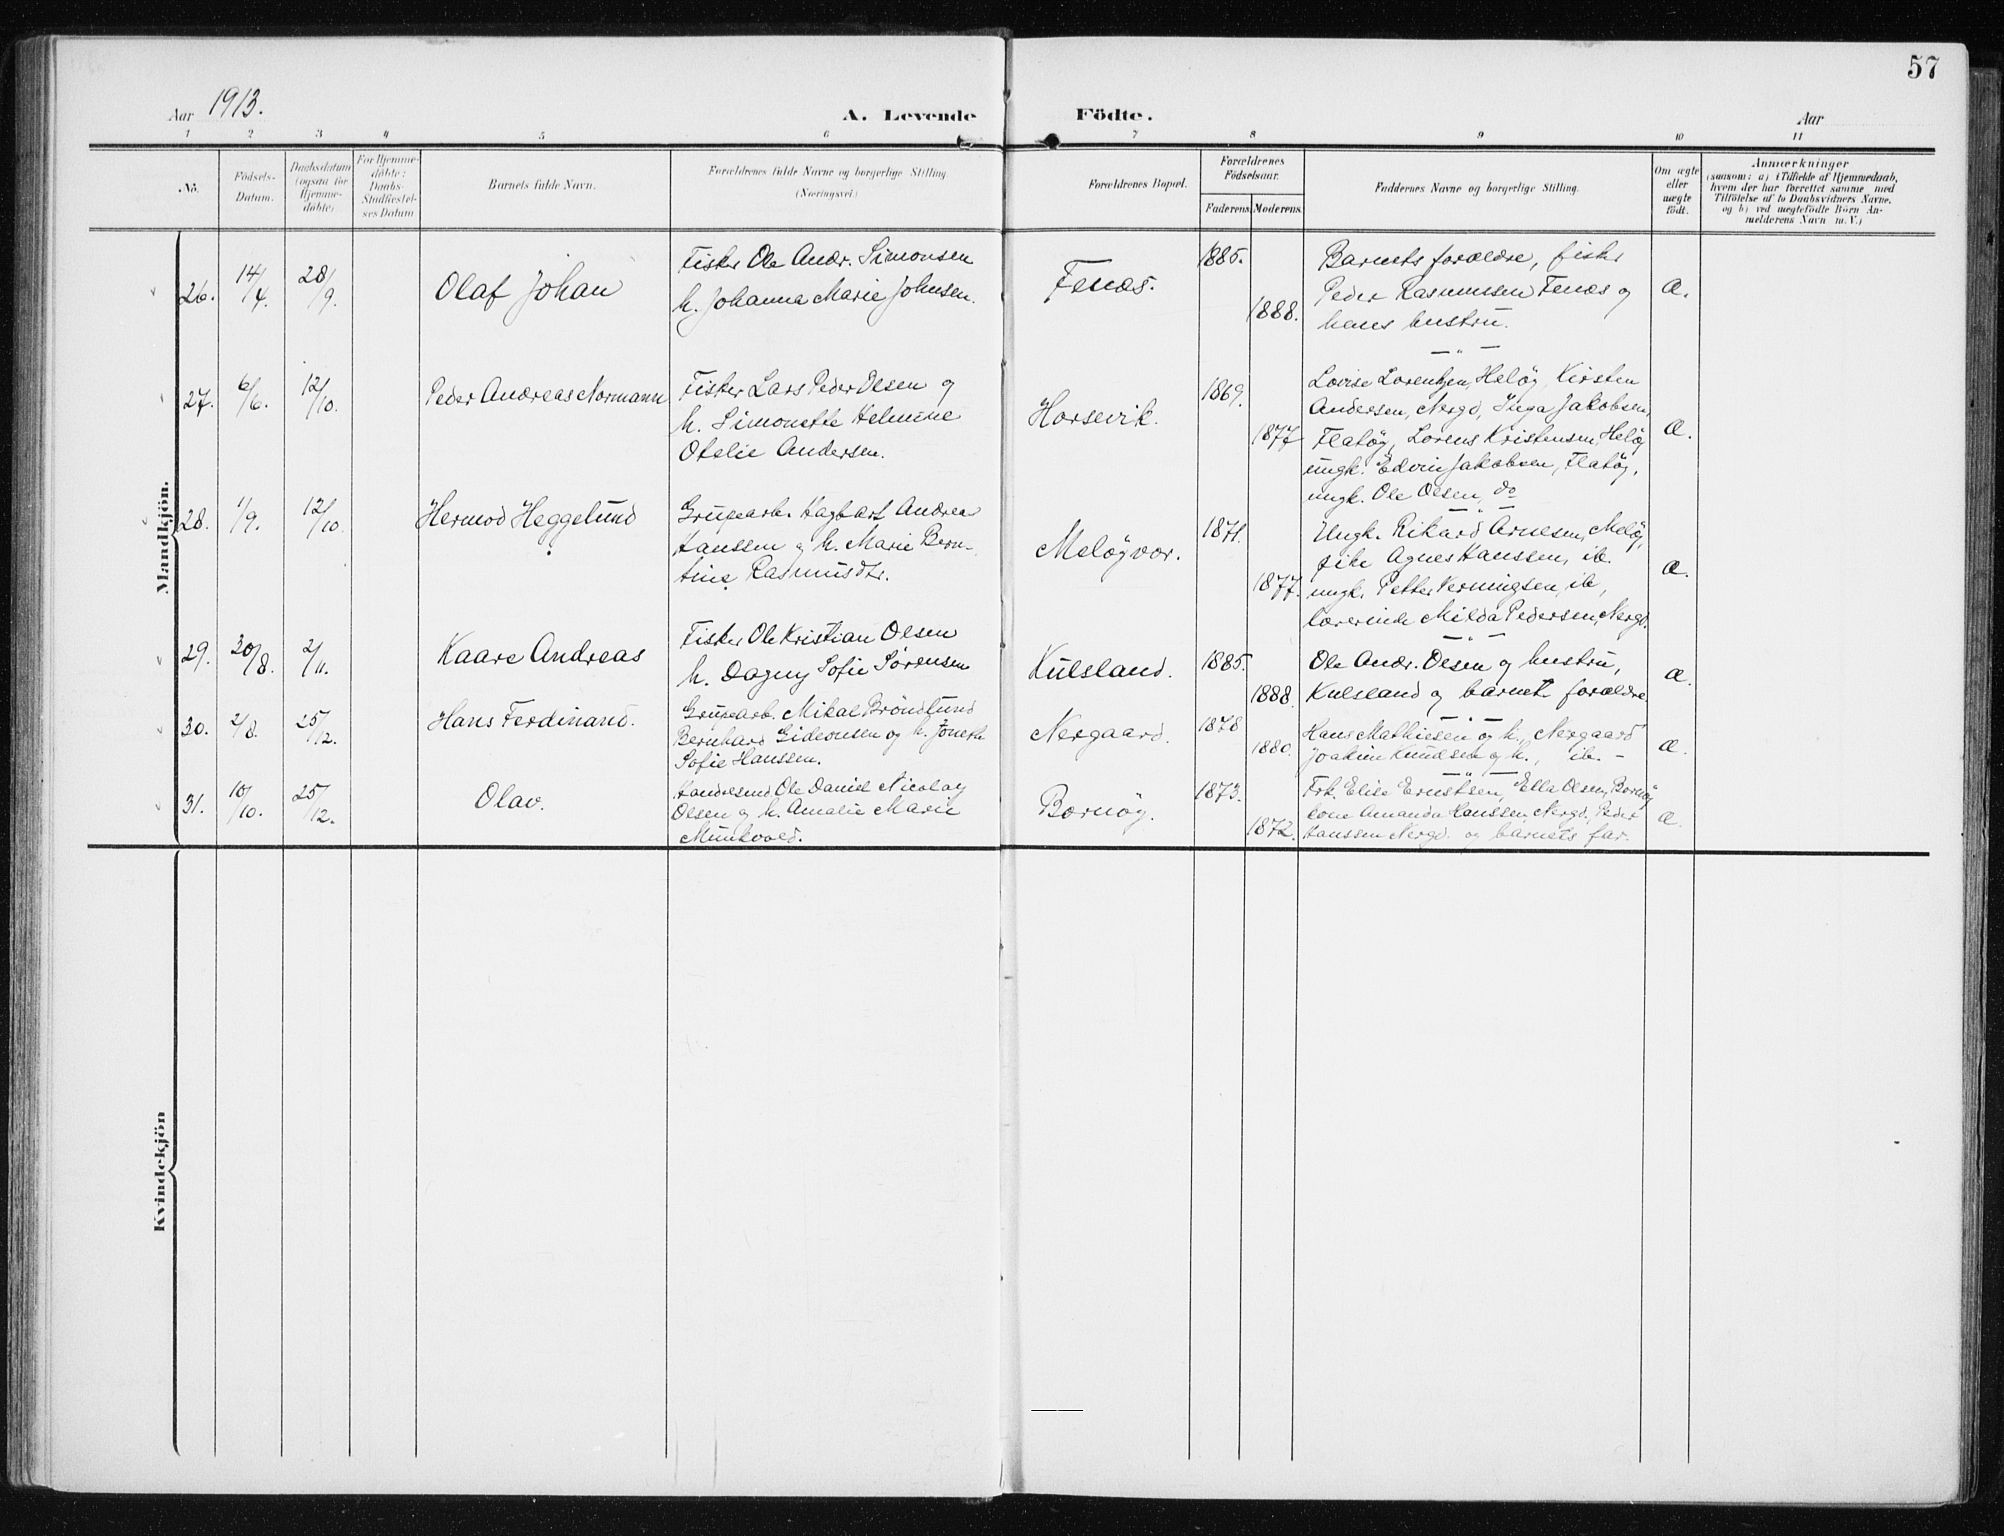 57
Aar 1913.
A. Levende Födte.
Aar
1 2 3 4 5 6 7 8 9 10 11
No.
Födsels-
Datum.
Daabsdatum
(ogsaa for
Hjemme-
döbte)
For Hjemme-
döbte:
Daabs-
Stadfæstel-
ses Datum
Barnets fulde Navn.
Forældrenes fulde Navne og borgerlige Stilling.
(Næringsvei.)
Forældrenes Bopæl.
Forældrenes
Födselsaar.
Faderens
Moderens.
Faddernes Navne og borgerlige Stilling.
Om ægte
eller
uægte
födt.
Anmærkninger
(saasom: a) i Tilfælde af Hjemmedaab,
hvem der har forrettet samme med
Tilföielse af to Daabsvidners Navne.
og b) ved uægtefödte Börn An-
melderens Navn m. V.)
Mandkjön.
26.
14/4
28/9.
Olaf Johan
Fisker Ole Andr. Simonsen
h. Johanna Marie Johnsen.
Fenæs.
1885.
1888.
Barnets forældre, fisker
Peder Rasmussen Fenæs og
hans hustru.
æ.
27.
6/6.
12/10.
Peder Andreas Normann
Fisker Lars Peder Olsen og
h. Simonette Helmine
Otelie Andersen.
Horsevik.
1869.
1877
Lovise Lorentzen, Heløg, Kirsten
Andersen, Nergd, Inga Jakobsen,
Flatøg, Lorens Kristensen, Heløg
ungk. Edvin Jakobsen, Flatøg,
ungk. Ole Olsen, do
æ.
28.
1/9.
12/10
Hermod Heggelund
Grubearb. Hagbart Andreas
Hanssen og h. Marie Bern-
tine Rasmusdtr.
Meløgvær.
1871.
1877.
Ungk. Rikard Arnesen, Meløg,
pike Agnes Hanssen, ib.
ungk. Petter Henningsen, ib,
lærerinde Milda Pedersen, Nergd.
æ.
29.
20/8.
2/11.
Kaare Andreas
Fisker Ole Kristian Olsen
h. Dagny Sofie Sørensen
Kulsland.
1885.
1888.
Ole Andr. Olsen og hustru,
Kulsland og barnets forældre.
æ.
30.
2/8.
25/12.
Hans Ferdinand.
Grubearb. Mikal Brøndlund
Bernhard Gideonsen og h. Jonette
Sofie Hanssen.
Nergaard.
1878
1880.
Hans Mathiesen og h., Nergaard
Joakim Knudsen og h., ib. -
æ.
31.
10/10.
25/12.
Olav.
Handelsmd Ole Daniel Nicolay
Olsen og h. Amalie Marie
Munkvold.
Bornøg.
1873.
1872.
Frk. Elise Ernstsen, Ella Olsen, Bornøg
kone Amanda Hanssen, Nergd, Peder
Hanssen Nergd. og barnets far.
æ.
Kvindekjön